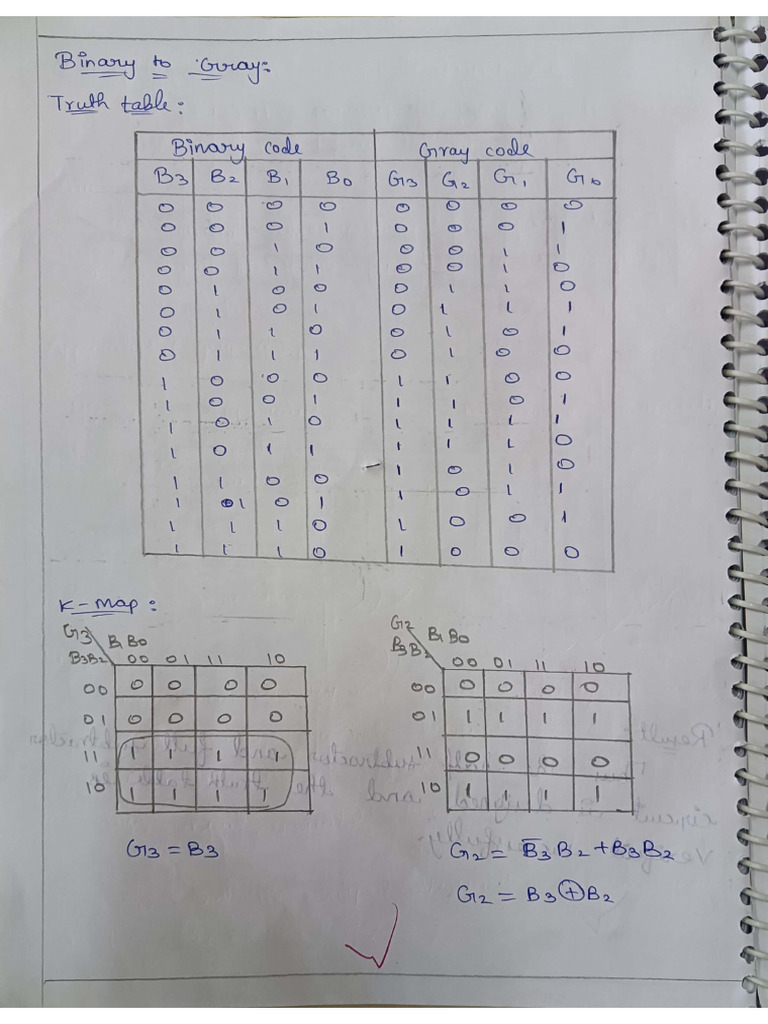 Binary to Gray:
Truth table:
Binary code Gray code
B3 B2 B1 B0 G3 G2 G1 G0
0 0 0 0 0 0 0 0
0 0 0 1 0 0 0 1
0 0 1 0 0 0 1 1
0 0 1 1 0 0 1 0
0 1 0 0 0 1 1 0
0 1 0 1 0 1 1 1
0 1 1 0 0 1 0 1
0 1 1 1 0 1 0 0
1 0 0 0 1 1 0 0
1 0 0 1 1 1 0 1
1 0 1 0 1 1 1 1
1 0 1 1 1 1 1 0
1 1 0 0 1 0 1 0
1 1 0 1 1 0 1 1
1 1 1 0 1 0 0 1
1 1 1 0 1 0 0 0
K-map:
G3 B1B0
B3B2 00 01 11 10
00 0 0 0 0
01 0 0 0 0
11 1 1 1 1
10 1 1 1 1
G3 = B3
G2 B1B0
B3B2 00 01 11 10
00 0 0 0 0
01 1 1 1 1
11 0 0 0 0
10 1 1 1 1
G2 = B̅3B2 + B3B2
G2 = B3⊕B2